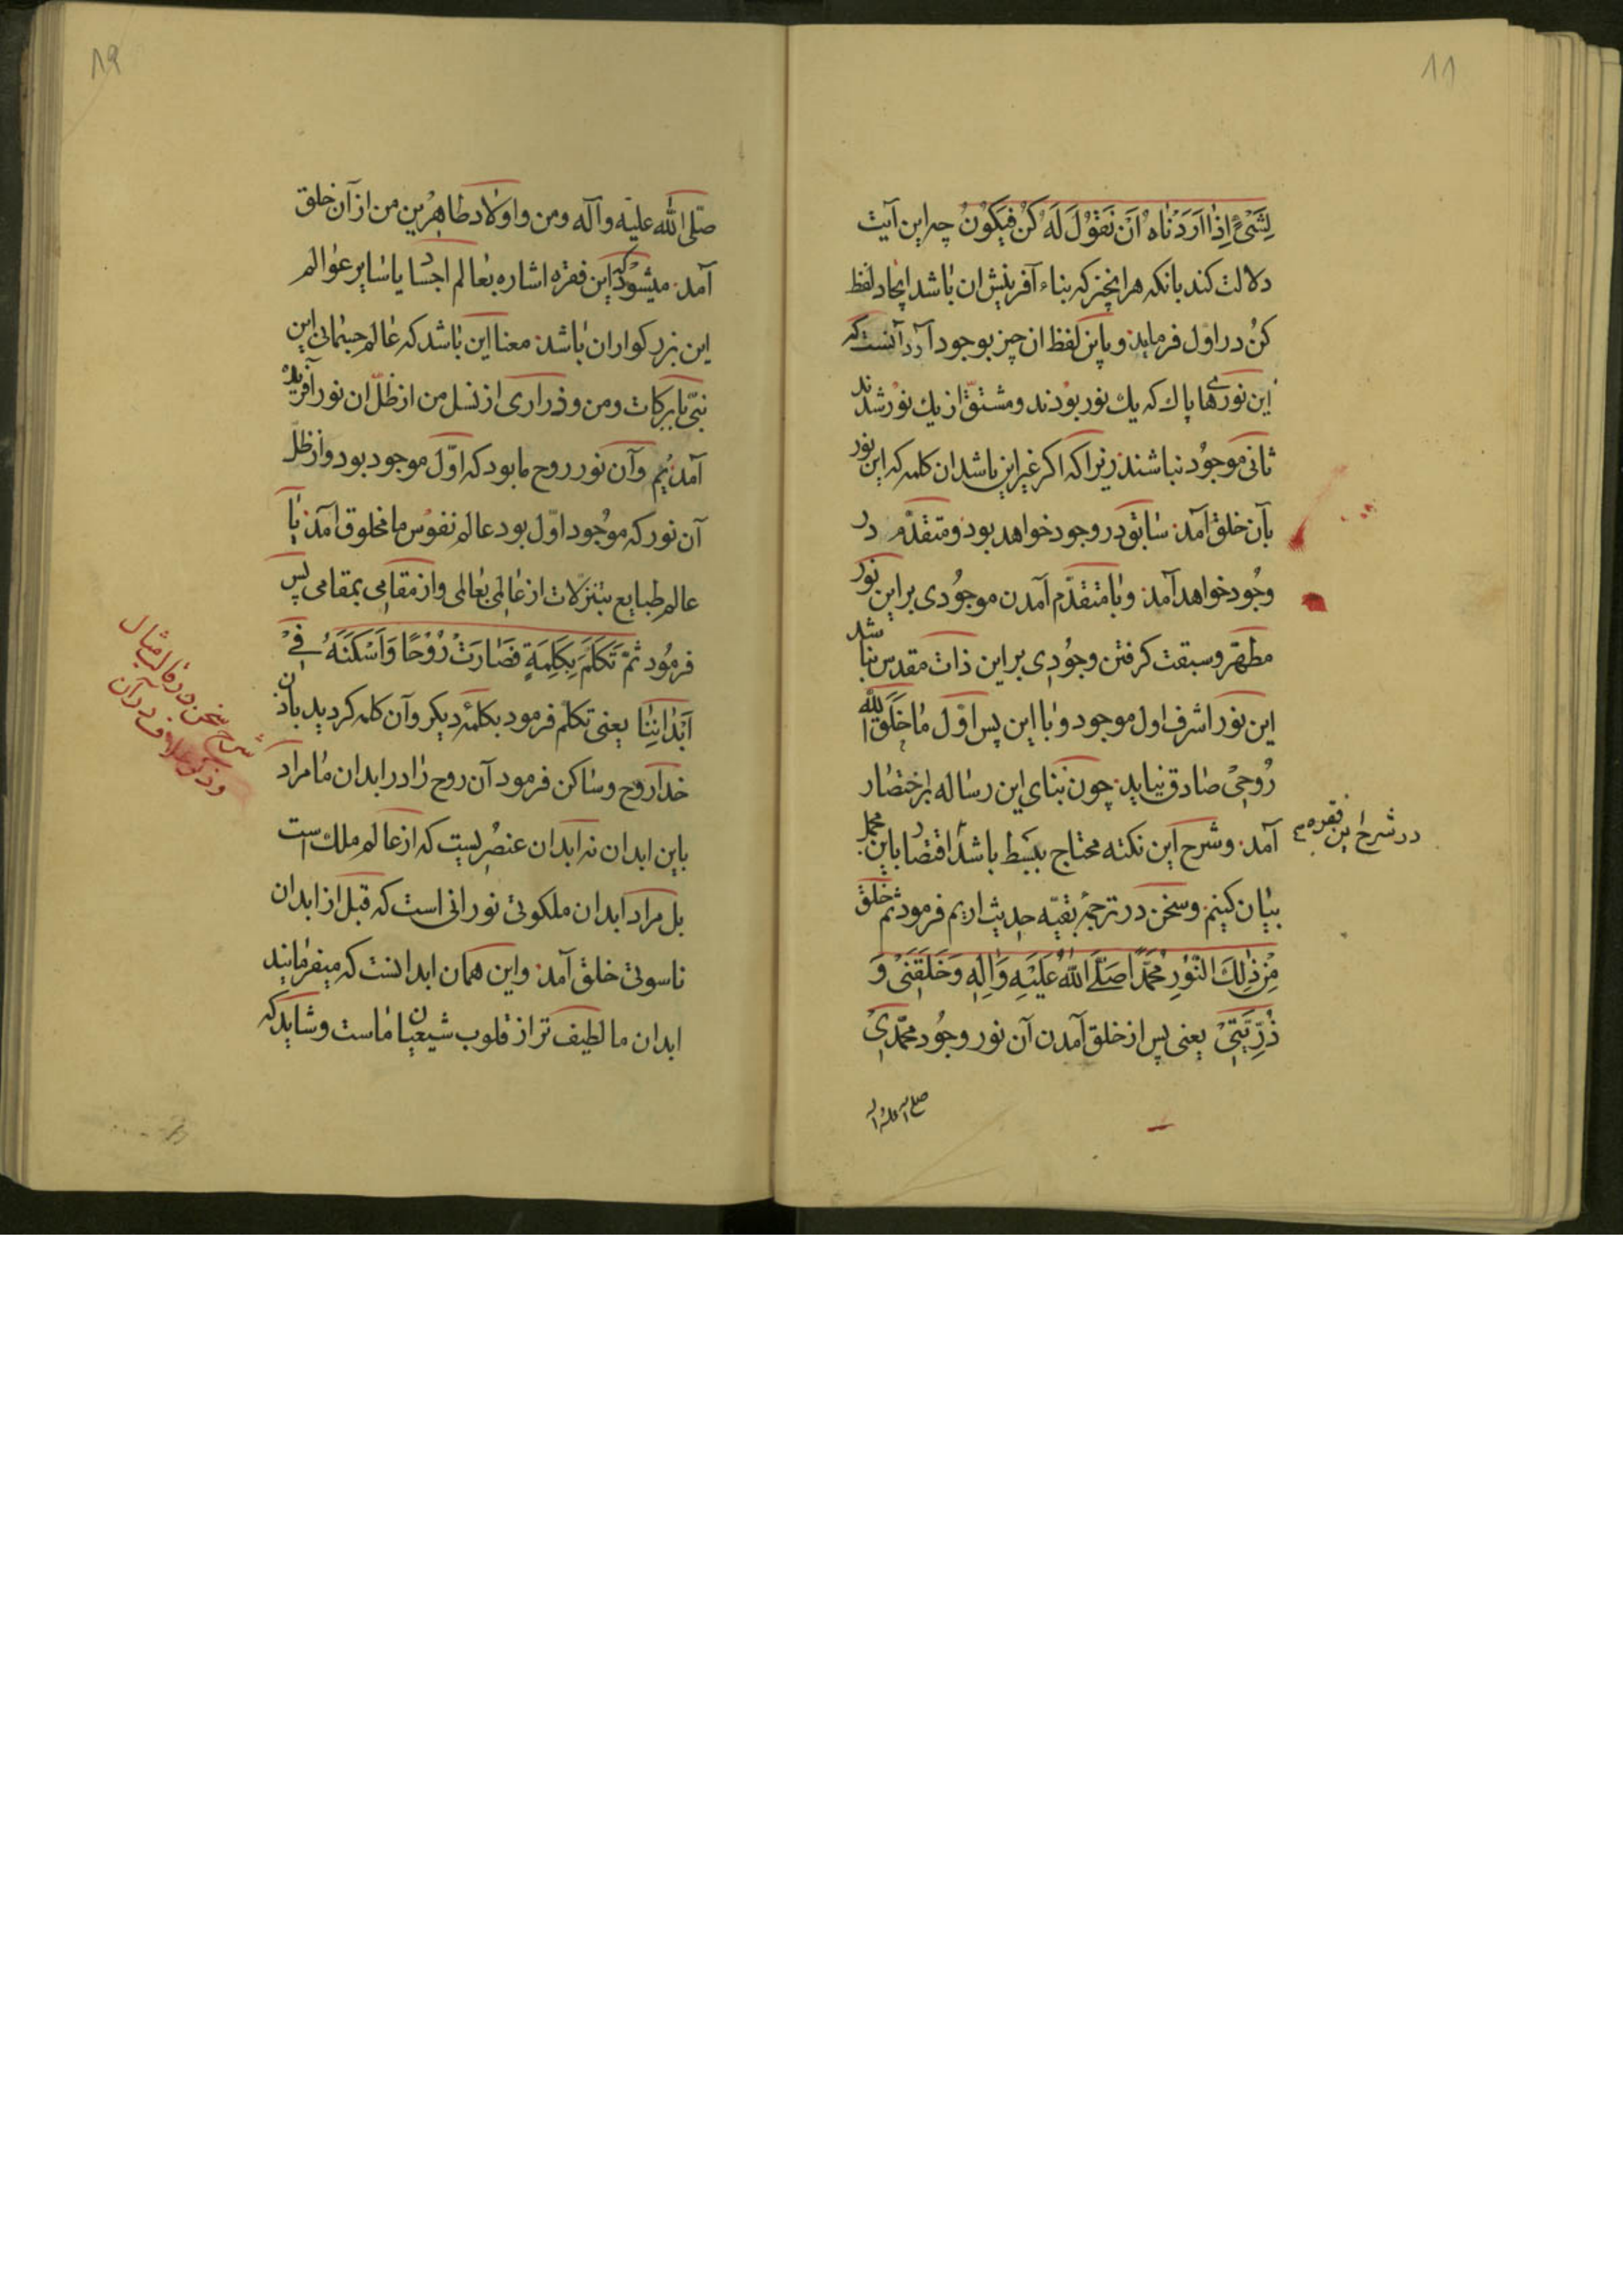 ١١
لِشَیْءٍ اِذٰا اَرَدْنٰاهُ اَنْ نَقُوْلَ لَهُ کُنْ فَیَکُوْنُ چه این آیت
دلالت کند بانکه هر انچیز که بناء آفرینش ان باشد ایجاد لفظ
کن در اوّل فرماید و باین لفظ ان چیز بوجود آرد آنست که
این نورهای پاک که یک نور بودند و مشتقّ از یک نور شدند
ثانی موجود نباشند زیرا که اگر غیر این باشد ان کلمه که این نور
بآن خلق آمد سابق در وجود خواهد بود و متقدّم در
وجود خواهد آمد و با متقدّم آمدن موجودی بر این نور
مطهّر و سبقت گرفتن وجودی بر این ذات مقدس بناشد
این نور اشرف اول موجود و با این پس اوّل مٰا خَلَقَ اللّٰه
رُوحِیْ صادق نیاید چون بنای این رساله بر اختصار
آمد و شرح این نکته محتاج ببسط باشد اقتصار باین مجمل
بیان کنیم و سخن در ترجمهٔ بقیّه حدیث اریم فرمود ثم خلق
مِنْ ذٰلِكَ النُّوْرِ مُحَمَّدًا صَلَّی اللّٰهُ عَلَیْهِ وَاٰلِهِ وَخَلَقَنَیْ وَ
ذُرِّیَّتِیْ یعنی پس از خلق آمدن آن نور وجود محمّدی
صلی الله علیه و اله
در شرح این فقره
١٩
صلّی اللّٰه علیه وآله ومن و اولاد طاهرین من از آن خلق
آمد میشود که این فقره اشاره بعالم اجساد یا سایر عوالم
این بزرگواران باشد معنا این باشد که عالم جسمانی این
نبیّ با برکات و من و ذراری از نسل من از ظلّ ان نور آفریده
آمدیم وآن نور روح ما بود که اوّل موجود بود و از ظلّ
آن نور که موجود اوّل بود عالم نفوس ما مخلوق آمد یا
عالم طبایع بتنزلات از عالمی بعالمی و از مقامی بمقامی پس
فرمود ثُمَّ تَکَلَّمَ بِکَلِمَةٍ فَصٰارَتْ رُوْحًا وَاَسْکَنَهُ فِیْ
اَبْدٰانِنٰا یعنی تکلّم فرمود بکلمهٔ دیگر وآن کلمه گردید باذن
خدا روح و ساکن فرمود آن روح را در ابدان ما مراد
باین ابدان نه ابدان عنصریست که از عالم ملك است
بل مراد ابدان ملکوتی نورانی است که قبل از ابدان
ناسوتی خلق آمد و این همان ابدانست که میفرمایند
ابدان ما لطیف تر از قلوب شیعیان ماست و شاید که
شرح سخن در قالب مثال
و ذکر خلاف در آن